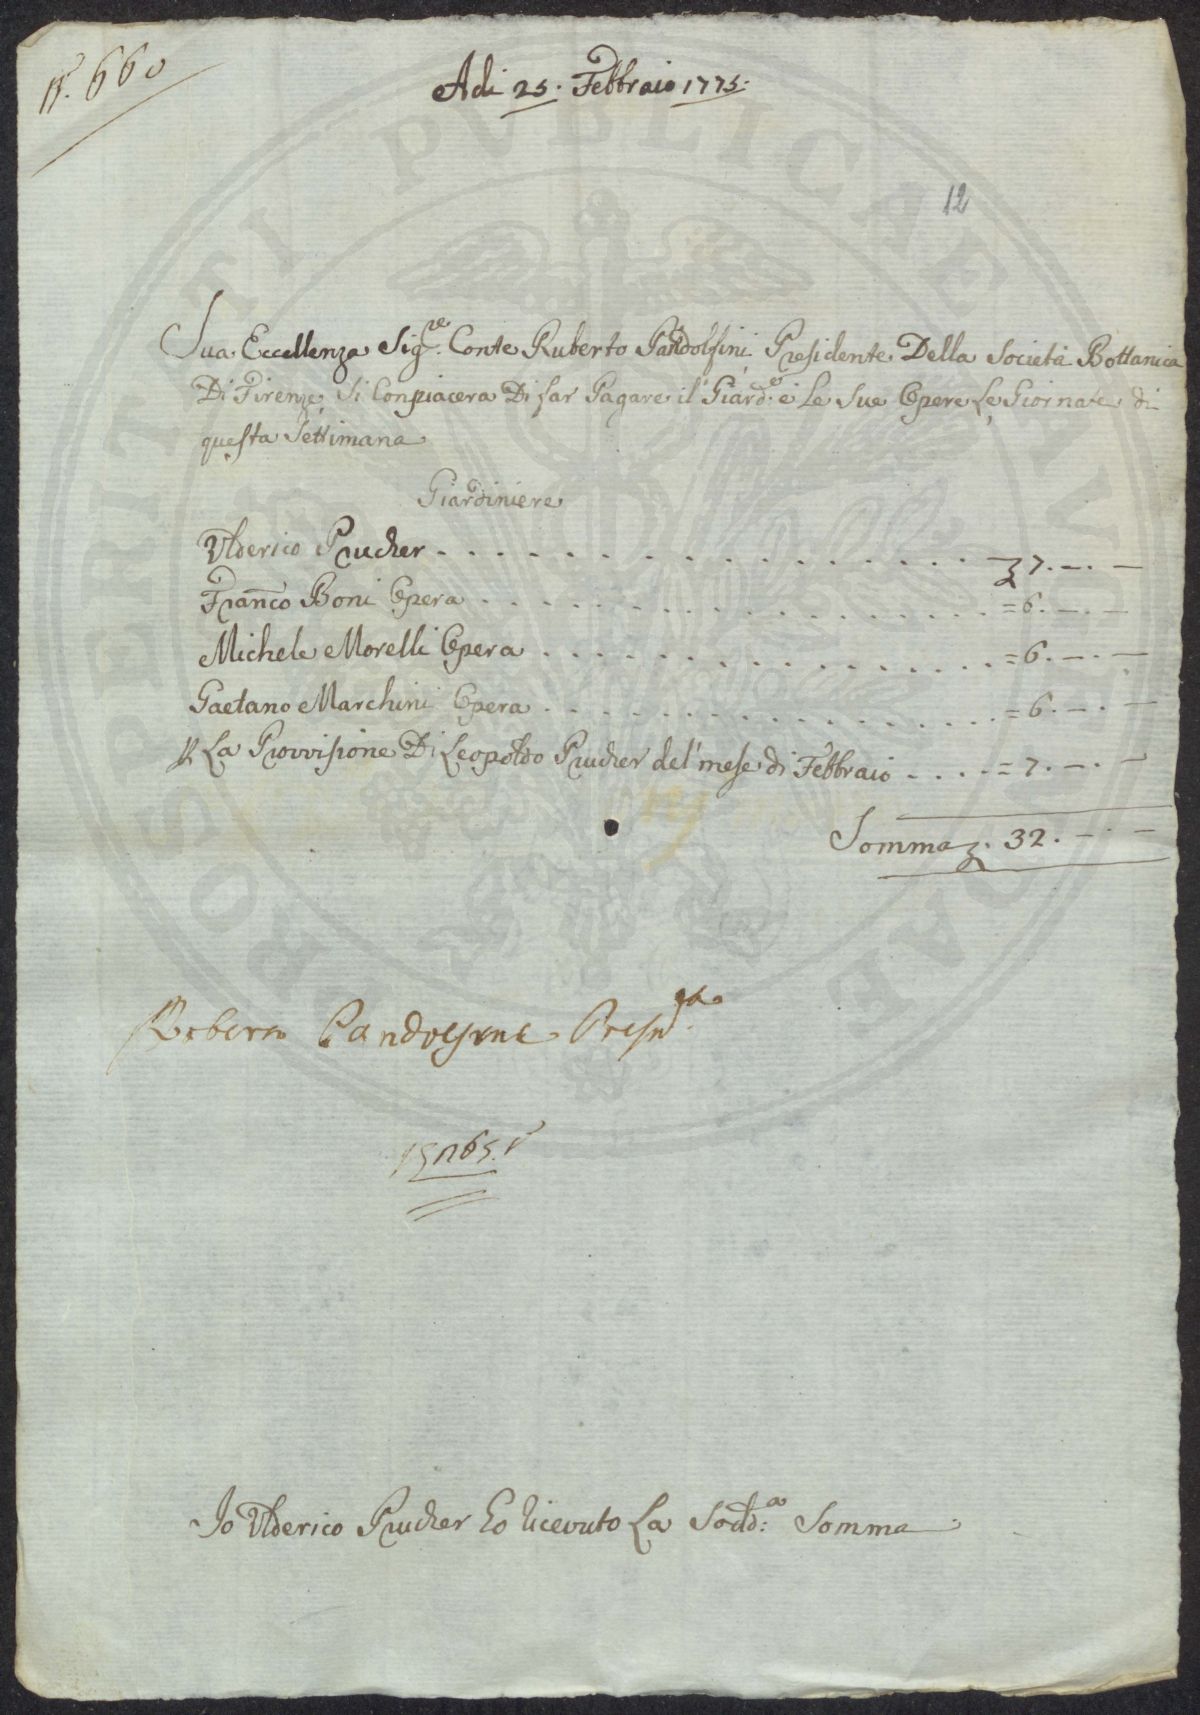 N.º 660
Adi 25. Febbraio 1775.
12
Sua Eccellenza Sig.re Conte Ruberto Pandolfini Presidente Della Società Bottanica
Di Firenze, Si Conpiacera Di far Pagare il Giard.e e Le Sue Opere Le Giornate di
questa Settimana
Giardiniere
Ulderico Prucher . . . . . . . . . . . . . . . 7. — . —
Franco Boni Opera . . . . . . . . . . . . . . . = 6. — . —
Michele Morelli Opera . . . . . . . . . . . . . . . = 6. — . —
Gaetano Marchini Opera . . . . . . . . . . . . . . . = 6. — . —
La Provvisione Di Leopoldo Prucher del' mese di Febbraio . . . . = 7. — . —
Somma 32. — . —
Roberto Pandolfini Presid.te
Io Ulderico Prucher ho ricevuto La Sodd.a Somma
PROSPERITATI PUBLICAE AUGENDAE